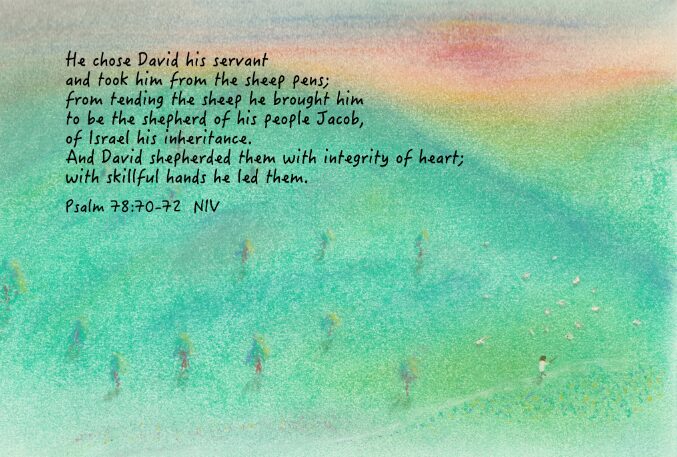 He chose David his servant
and took him from the sheep pens;
from tending the sheep he brought him
to be the shepherd of his people Jacob,
of Israel his inheritance.
And David shepherded them with integrity of heart;
with skillful hands he led them.
Psalm 78:70-72 NIV